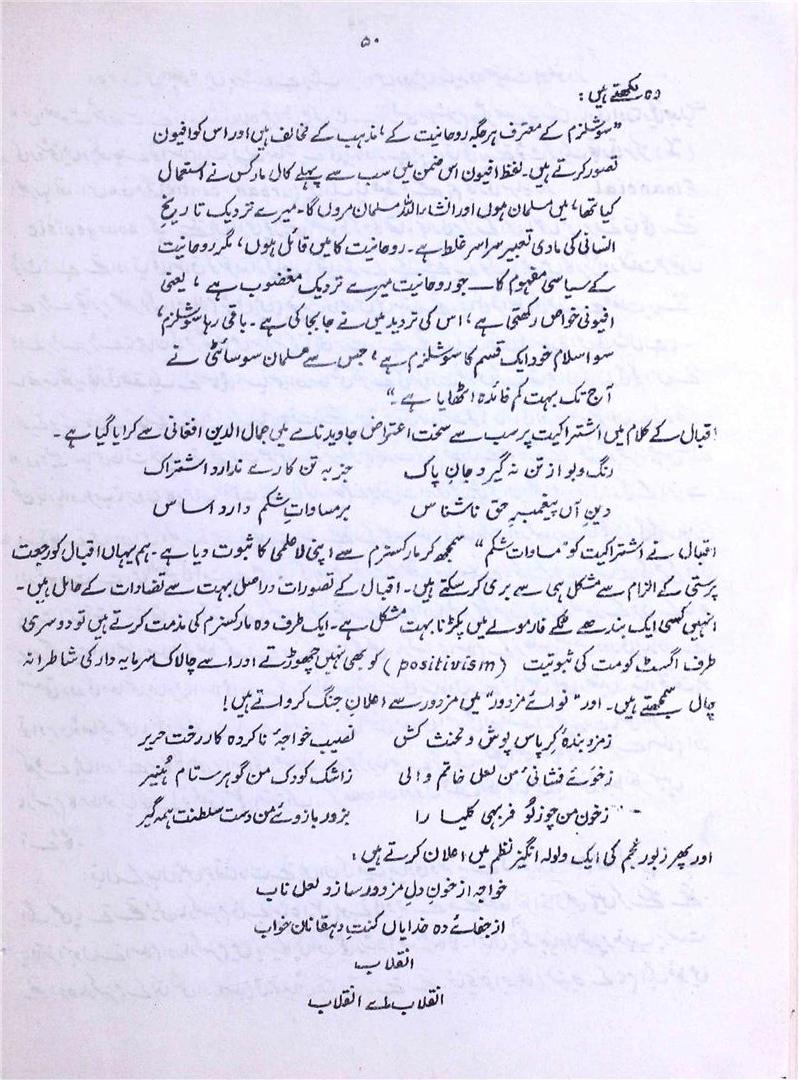 ۵۰
وہ لکھتے ہیں:
”سوشلزم کے معترف ہر جگہ روحانیت کے، مذہب کے مخالف ہیں اور اس کو افیون
تصور کرتے ہیں۔ لفظ افیون اس ضمن میں سب سے پہلے کال مارکس نے استعمال
کیا تھا، میں مسلمان ہوں اور انشاء اللہ مسلمان مروں گا۔ میرے نزدیک تاریخ
انسانی کی مادی تعبیر سراسر غلط ہے۔ روحانیت کا میں قائل ہوں، مگر روحانیت
کے سیاسی مفہوم کا۔ جو روحانیت میرے نزدیک مغضوب ہے، یعنی
افیونی خواص رکھتی ہے، اس کی تردید میں نے جابجا کی ہے۔ باقی رہا سوشلزم،
سو اسلام خود ایک قسم کا سوشلزم ہے، جس سے مسلمان سوسائٹی نے
آج تک بہت کم فائدہ اٹھایا ہے۔“
اقبال کے کلام میں اشتراکیت پر سب سے سخت اعتراض جاوید نامے میں جمال الدین افغانی سے کرایا گیا ہے۔
رنگ و بو از تن نہ گیرد جان پاک جز بہ تن کارے ندارد اشتراک
دینِ آں پیغمبرِ حق ناشناس بر مساواتِ شکم دارد اساس
اقبال نے اشتراکیت کو ”مساوات شکم“ سمجھ کر مارکسزم سے اپنی لاعلمی کا ثبوت دیا ہے۔ ہم یہاں اقبال کو رجعت
پرستی کے الزام سے مشکل ہی سے بری کر سکتے ہیں۔ اقبال کے تصورات دراصل بہت سے تضادات کے حامل ہیں۔
انہیں کسی ایک بندھے ٹکے فارمولے میں پکڑنا بہت مشکل ہے۔ ایک طرف وہ مارکسزم کی مذمت کرتے ہیں تو دوسری
طرف اگسٹ کومت کی ثبوتیت (positivism) کو بھی نہیں چھوڑتے اور اسے چالاک سرمایہ دار کی شاطرانہ
چال سمجھتے ہیں۔ اور ”نوائے مزدور“ میں مزدور سے اعلان جنگ کرواتے ہیں!
زمزد بندۂ کرپاس پوش و محنت کش نصیب خواجۂ ناکردہ کار رخت حریر
زخوئے فشانیٔ من لعلی خاتم والی زاشک کودک من گوہر ستام ہمیر
زخون من چو زلو فربہی کلیسا را بزور بازوئے من دست سلطنت ہمہ گیر
اور پھر زبور عجم کی ایک ولولہ انگیز نظم میں اعلان کرتے ہیں:
خواجہ از خونِ دلِ مزدور سازد لعل ناب
از جفائے دہ خدایاں کشت دہقانان خراب
انقلاب
انقلاب اے انقلاب